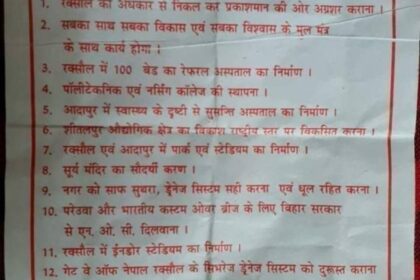 1. रक्सौल को अंधकार से निकल कर प्रकाशमान की ओर अग्रशर कराना ।
2. सबका साथ सबका विकास एवं सबका विश्वास के मुल मंत्र
के साथ कार्य होगा ।
3. रक्सौल में 100 बेड का रेफरल अस्पताल का निर्माण ।
4. पॉलीटेकनिक एवं नर्सिंग कॉलेज की स्थापना ।
5. आदापुर में स्वास्थ्य के दृष्टी से सुसज्जित अस्पताल का निर्माण ।
6. शीतलपुर औद्योगिक क्षेत्र का विकाश राष्ट्रीय स्तर पर विकसित करना ।
7. रक्सौल एवं आदापुर में पार्क एवं स्टेडियम का निर्माण ।
8. सुर्य मंदिर का सौदर्यी करण ।
9. नगर को साफ सुथरा, ड्रेनेज सिस्टम सही करना एवं धूल रहित करना ।
10. परेउवा और भारतीय कस्टम ओवर ब्रीज के लिए बिहार सरकार
से एन. ओ. सी. दिलवाना ।
11. रक्सौल में ईनडोर स्टेडियम का निर्माण ।
12. गेट वे ऑफ नेपाल रक्सौल के सिभरेज ड्रेनेज सिस्टम को दुरूस्त कराना